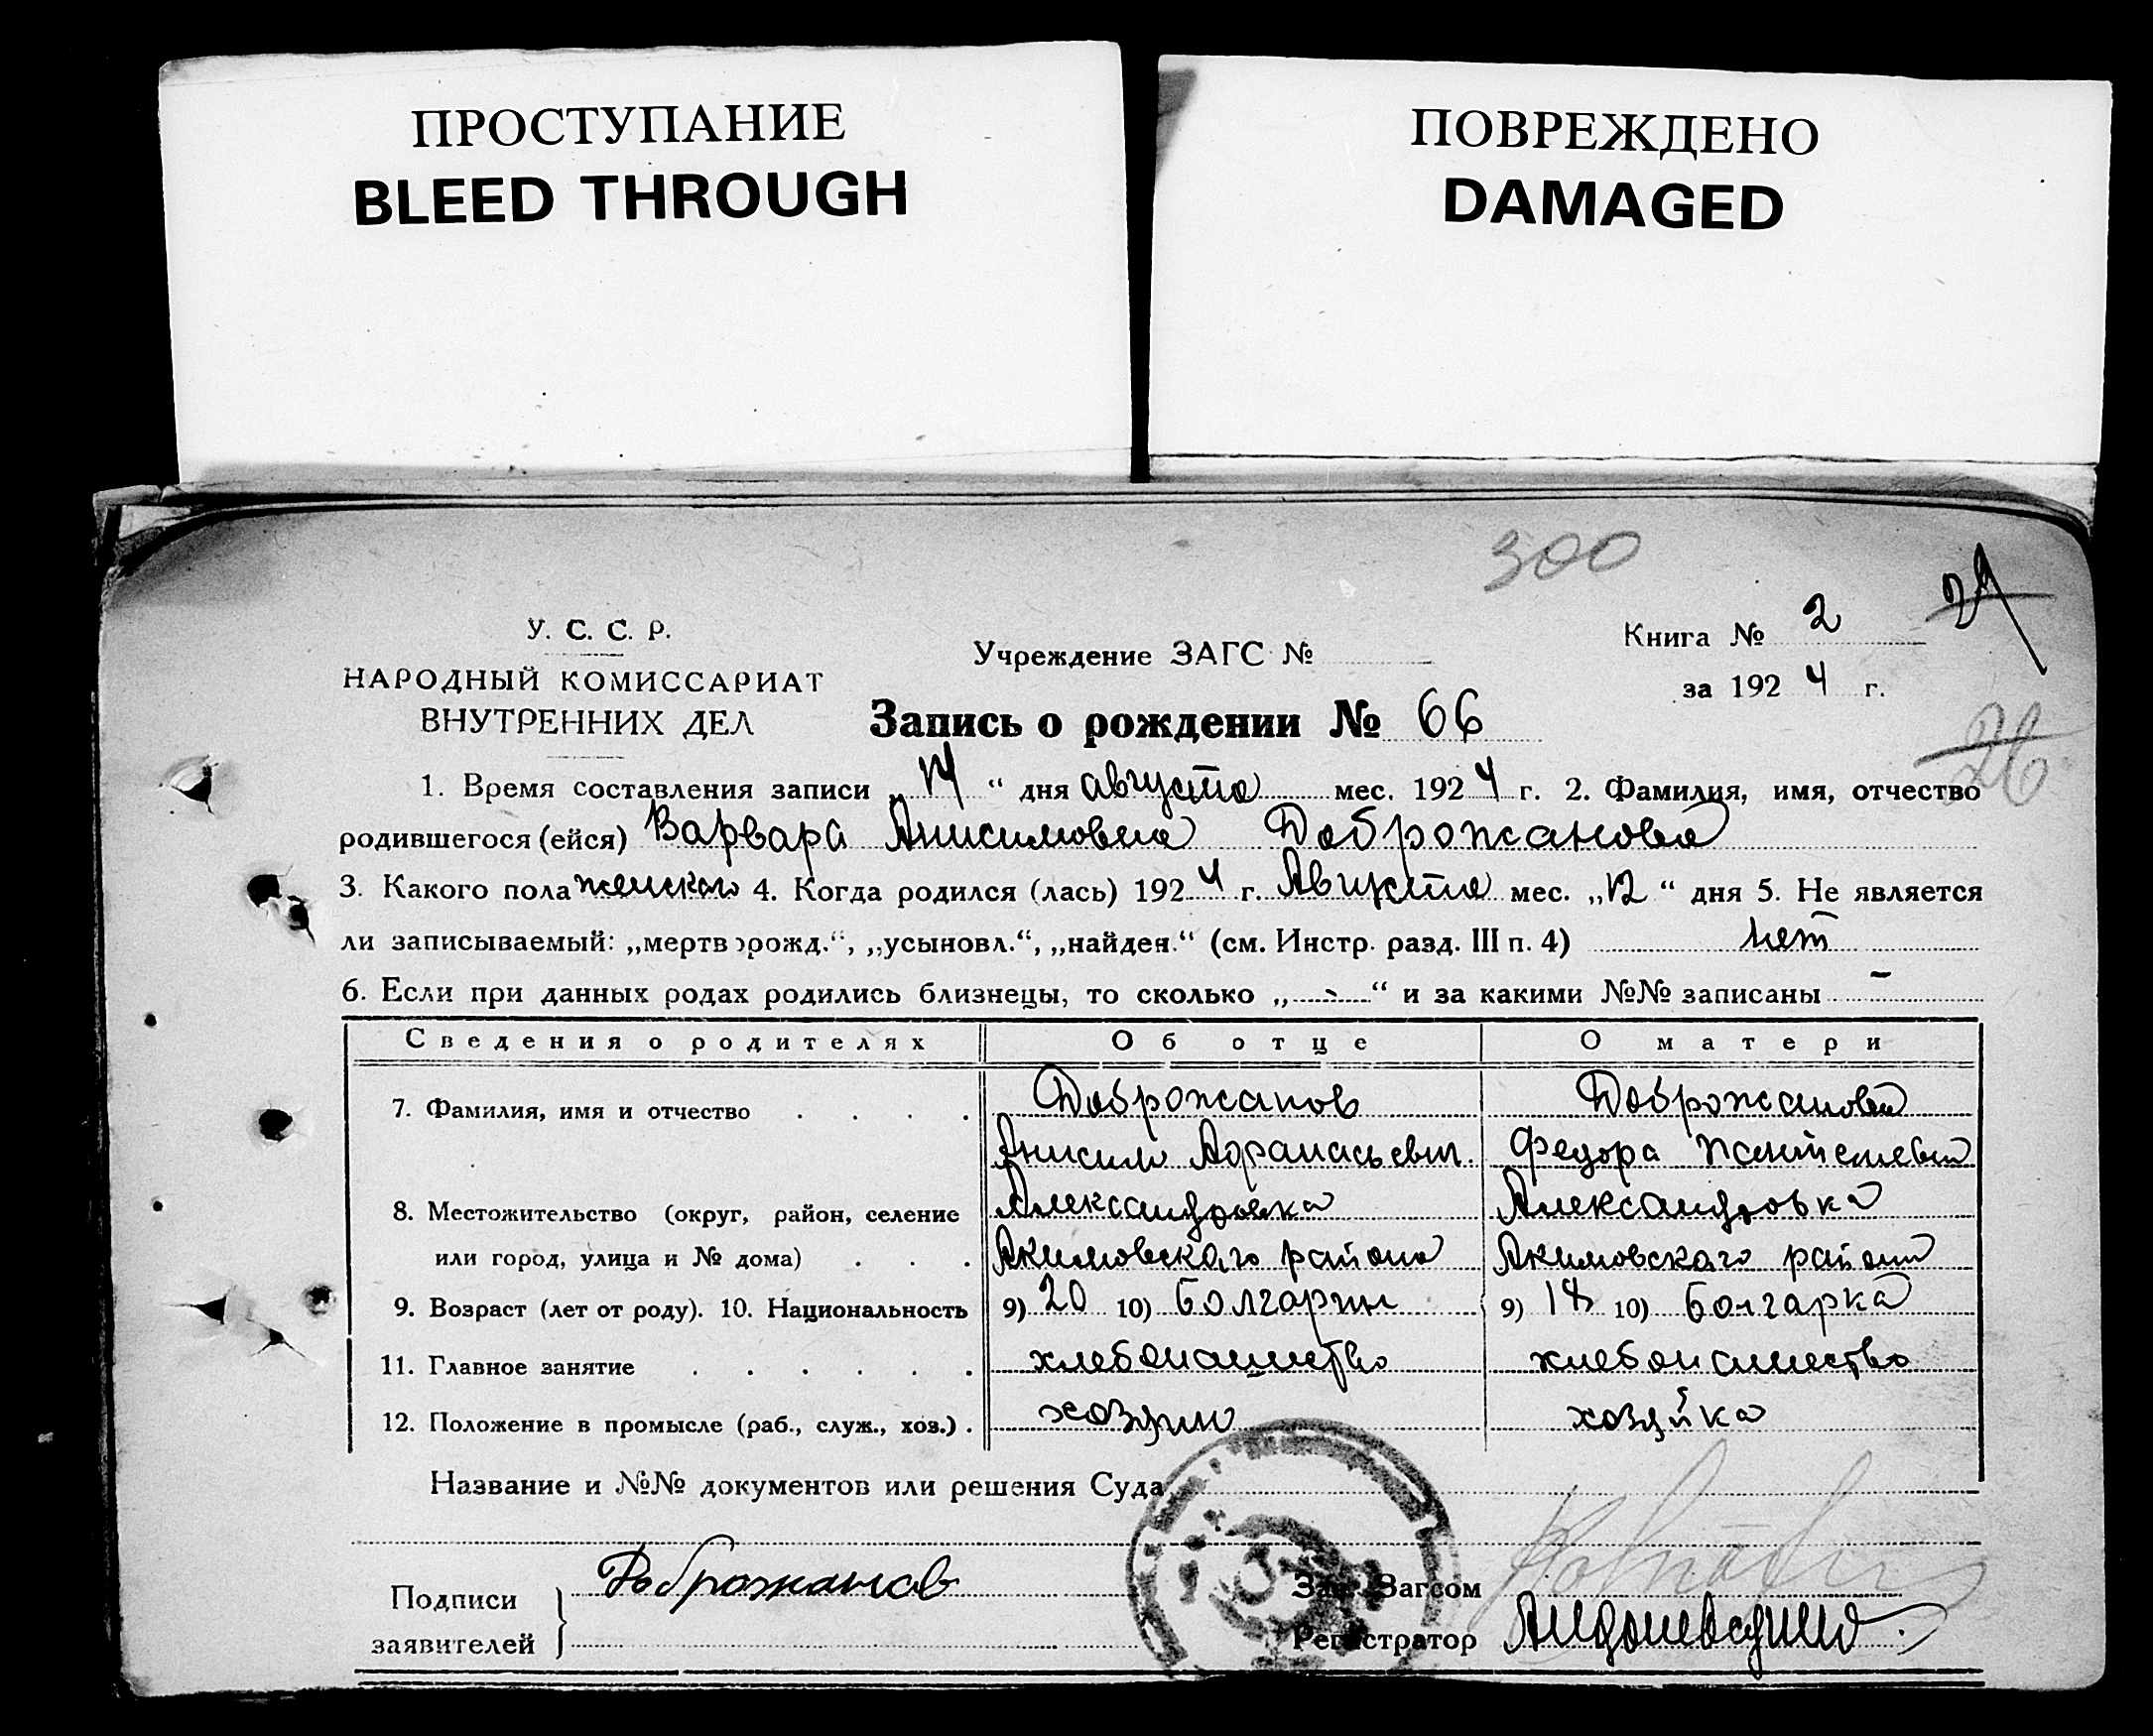 ПРОСТУПАНИЕ
BLEED THROUGH
ПОВРЕЖДЕНО
DAMAGED
300
У. С. С. Р.
Учреждение ЗАГС №
Книга № 2
24
НАРОДНЫЙ КОМИССАРИАТ
за 1924 г.
ВНУТРЕННИХ ДЕЛ
Запись о рождении № 66
26
1. Время составления записи „14“ дня августа мес. 1924 г. 2. Фамилия, имя, отчество
родившегося (ейся) Варвара Анисимовна Доброжанова
3. Какого пола женского 4. Когда родился (лась) 1924 г. Августа мес. „12“ дня 5. Не является
ли записываемый: „мертворожд.“, „усыновл.“, „найден.“ (см. Инстр. разд. III п. 4) нет
6. Если при данных родах родились близнецы, то сколько „-“ и за какими №№ записаны -
Сведения о родителях Об отце О матери
7. Фамилия, имя и отчество . . . . Доброжанов Доброжанова
Анисим Афанасьевич Федора Пантелеевна
8. Местожительство (округ, район, селение Александровка Александровка
или город, улица и № дома) . . . Акимовского района Акимовского района
9. Возраст (лет от роду). 10. Национальность 9) 20 10) болгарин 9) 18 10) болгарка
11. Главное занятие . . . . . . хлебопашество хлебопашество
12. Положение в промысле (раб., служ., хоз.) . хозяин хозяйка
Название и №№ документов или решения Суда
Подписи заявителей Доброжанов
Зав. Загсом
Регистратор